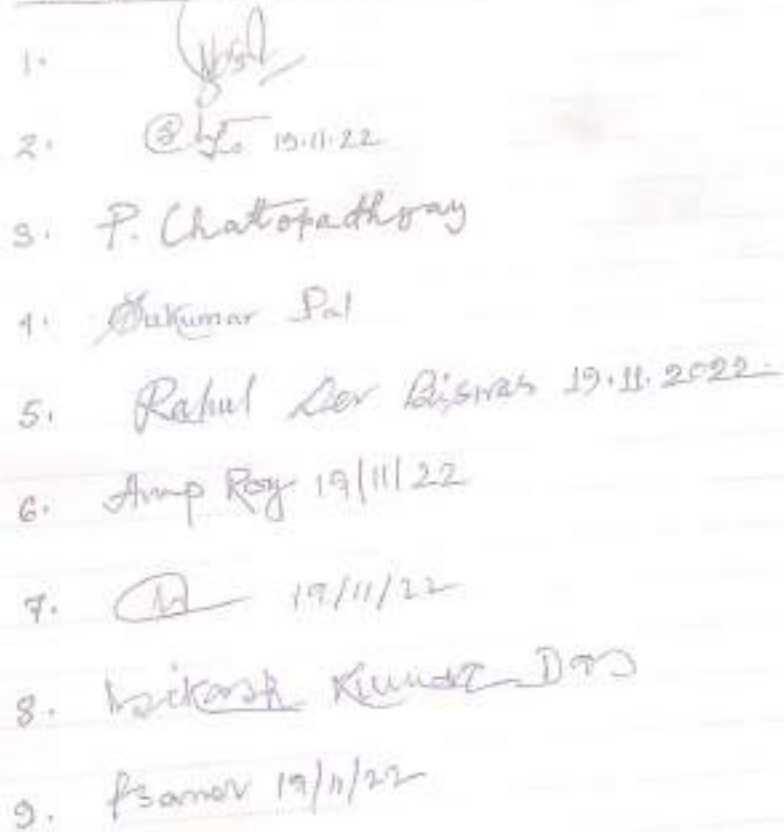 1.
2. 19.11.22
3. P. Chattopadhyay
4. Sukumar Pal
5. Rahul Dev Biswas 19.11.2022
6. Anup Roy 19/11/22
7. 19/11/22
8. Bikash Kumar Das
9. 19/11/22